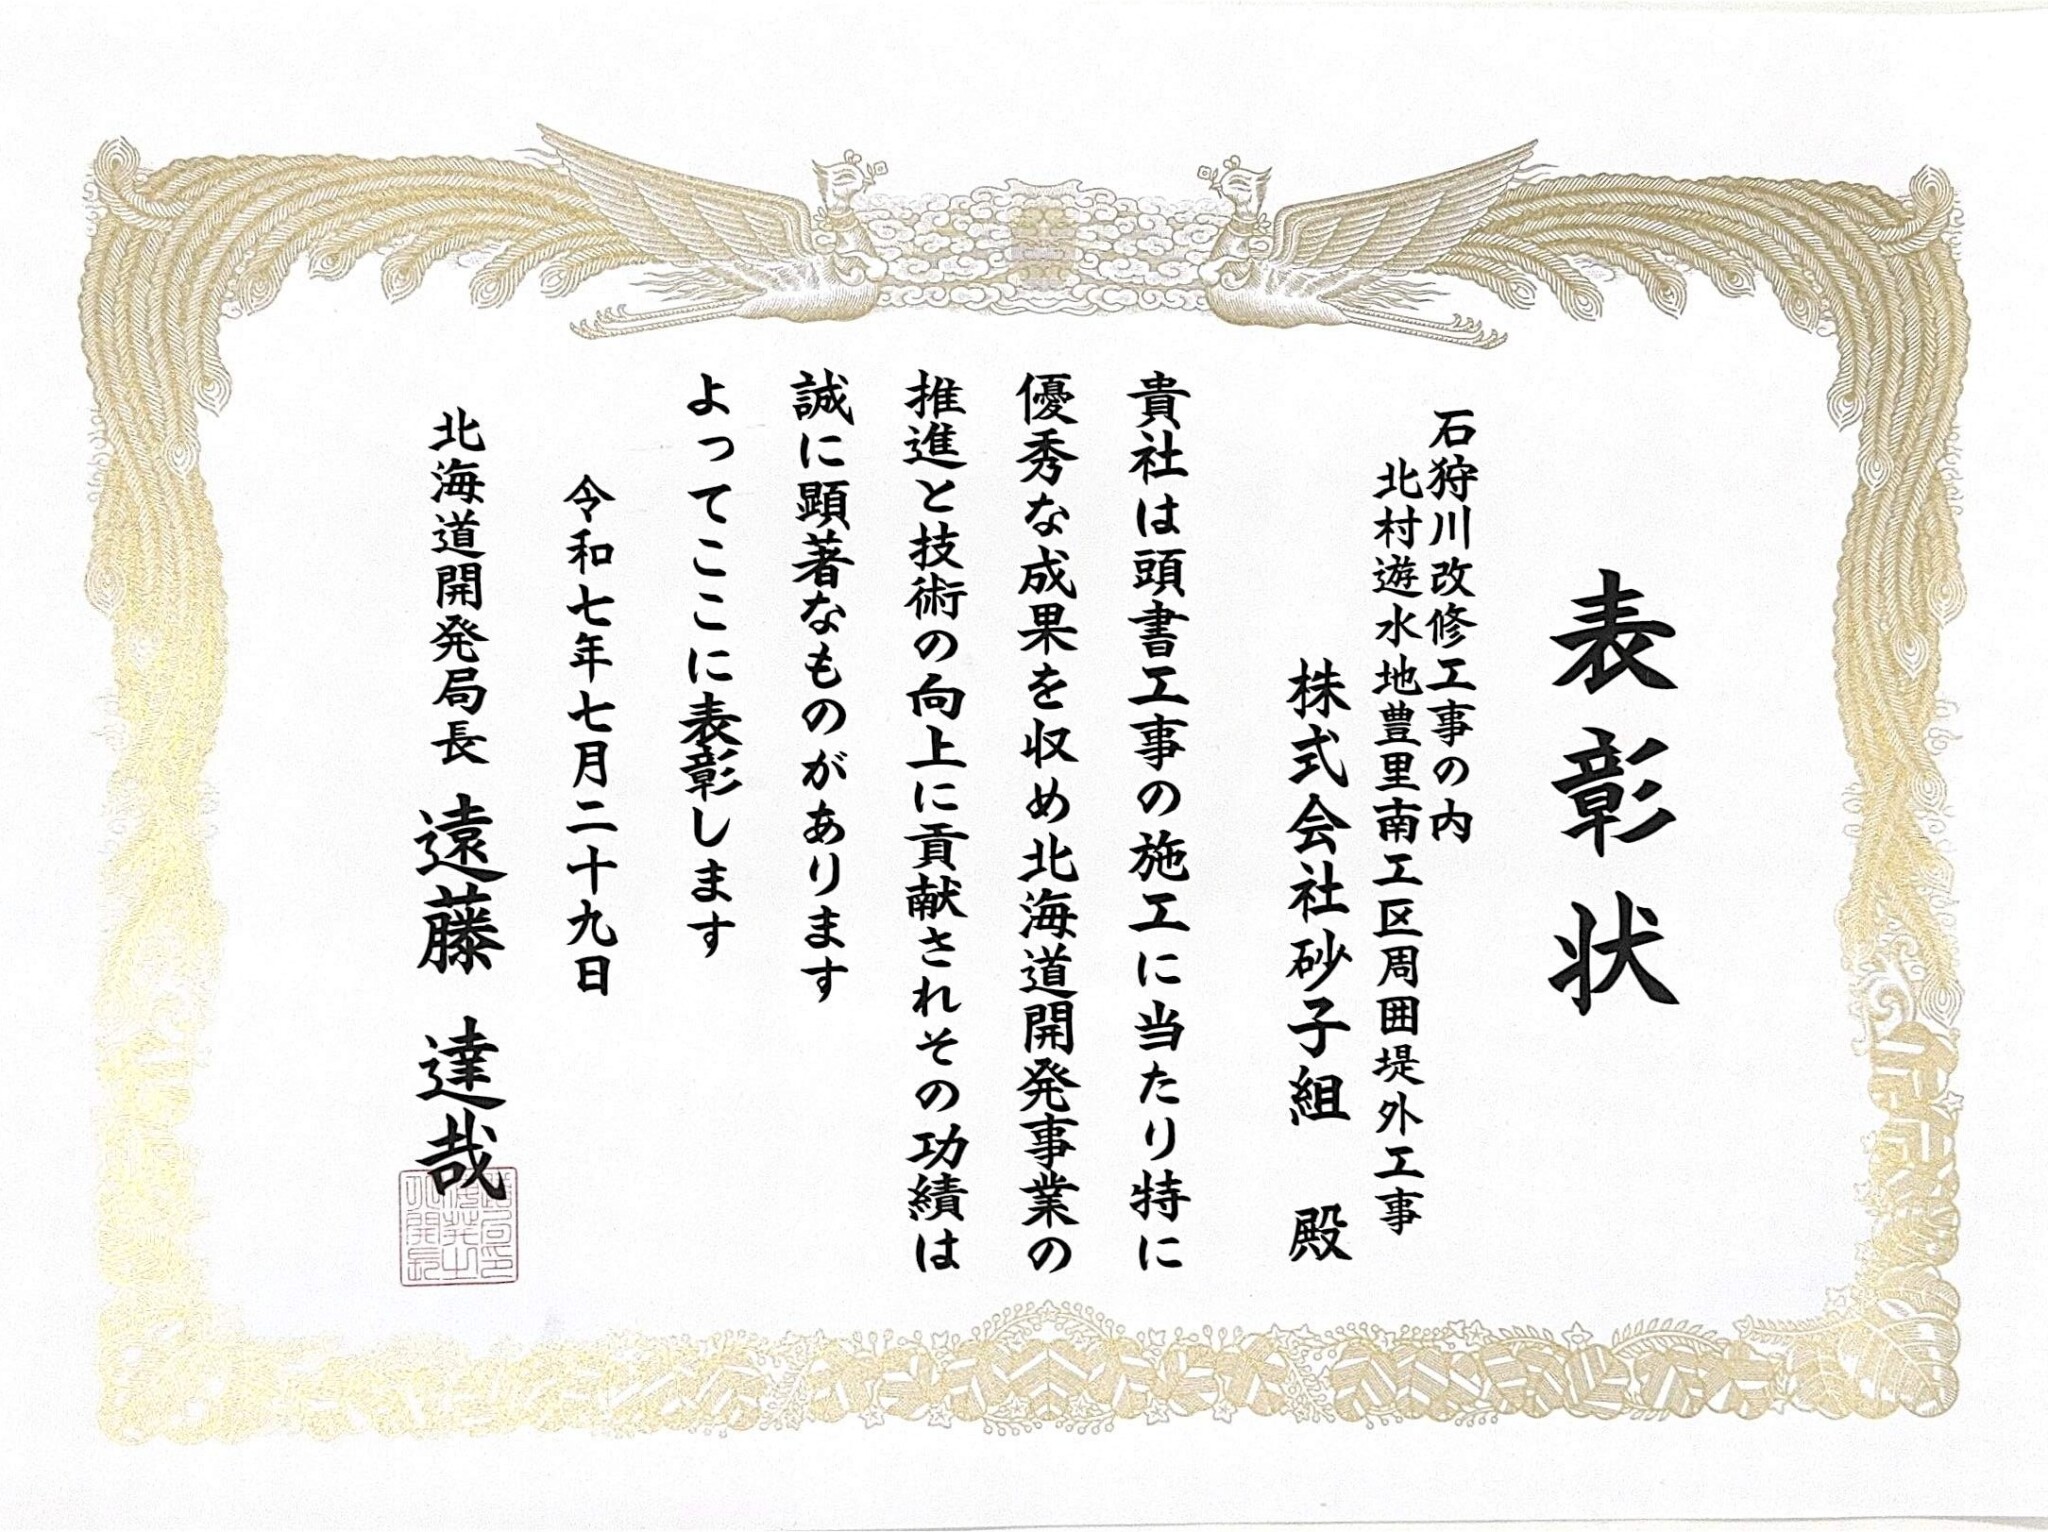 表彰状
石狩川改修工事の内
北村遊水地豊里南工区周囲堤外工事
株式会社砂子組 殿
貴社は頭書工事の施工に当たり特に
優秀な成果を収め北海道開発事業の
推進と技術の向上に貢献されその功績は
誠に顕著なものがあります
よってここに表彰します
令和七年七月二十九日
北海道開発局長 遠藤 達哉